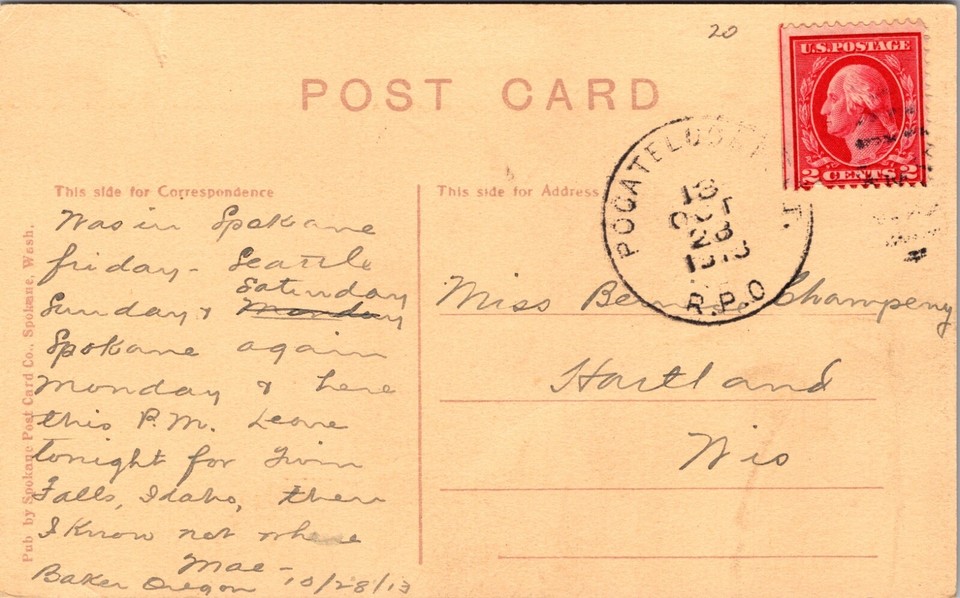 20
POST CARD
U.S. POSTAGE
2 CENTS 2
POCATEL
13
OCT
28
1913
R.P.O
This side for Correspondence
This side for Address
Was in Spokane
friday - Seattle
Saturday
Sunday & Monday
Spokane again
Monday & here
this P.M. Leave
tonight for Twin
Falls, Idaho, then
I know not where
Mae -
Baker Oregon 10/28/13
Miss Champeny
Hartland
Wis
Pub by Spokane Post Card Co., Spokane, Wash.